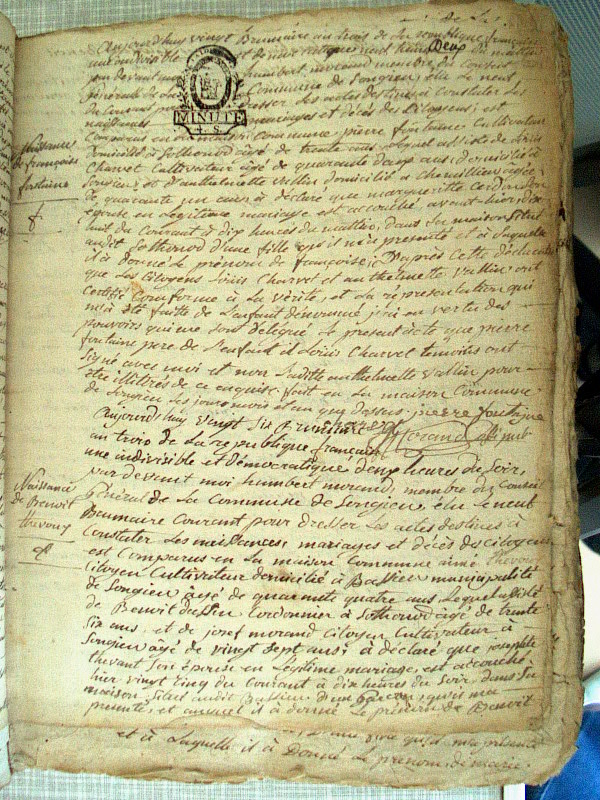 Aujourd'huy vingt Brumaire an trois de la republique française
une indivisible et Democratique neuf heures Deux du mattin
par devant moi humbert morand membre du Conseil
Général de La Commune de Songieu, élu le neuf
du Courant pour dresser les actes destinés à Constater les
naissances mariages et décès des Citoyens, est
Comparus en la maison Commune pierre fontaine Cultivateur
domicilié à Sothonod agé de trente ans Lequel assisté de Louis
Charvet Cultivateur agé de quarante deux ans domicilié à
Songieu et d'anthelmette Vallin domicilié à agée
de quarante un ans à déclaré que marguerite
épouse en Légitime mariage est accouché avant-hier dix
huit du Courant à dix heures du mattin, dans sa maison Situé
audit Sothonod d'une fille qu'il m'a presenté et à laquelle
il à donné le prénom de françoise; D'après Cette déclaration
que les Citoyens Louis Charvet et anthelmette Vallin ont
Certifié Conforme à la Vérité, et la représentation qui
m'a été faitte de L'enfant dénommé j'ai en vertu des
pouvoirs qui me sont délégué le present acte que pierre
fontaine pere de L'enfant et Louis Charvet temoins ont
Signé avec moi et non laditte anthelmette Vallin pour
etre illitérés de ce enquise fait en La maison Commune
de Songieu les jours mois et an que dessus pierre fontaine
Charvet Morand
Naissance
de françoise
fontaine
MINUTE
4. S.
Aujourd'huy vingt Six Brumaire
an trois de La republique française
une indivisible et Démocratique à deux heures du Soir,
par devant moi humbert morand, membre du Conseil
Général de La Commune de Songieu élu le neuf
Brumaire Courant pour dresser Les actes destinés à
Constater Les naissances, mariages et décès des citoyens
est Comparus en La maison Commune aimé thevoux
Citoyen Cultivateur domicilié à Bassieu municipalité
de Songieu agé de quarante quatre ans, Lequel assisté
de Benoit dessieu Cordonnier à Sothonod agé de trente
Six ans, et de josef morand Citoyen Cultivateur à
Songieu agé de vingt sept ans; à déclaré que josephte
thevant Son épouse en Légitime mariage, est accouché
hier vingt cinq du courant à dix heures du Soir, dans Sa
maison Situé audit Bassieu d'un garçon qu'il m'a
presenté, et auquel il à donné Le prénom de Benoit
Naissance
de Benoit
thevoux
d'une fille qu'il m'a présenté
et à Laquelle il à Donné Le prenom de marie